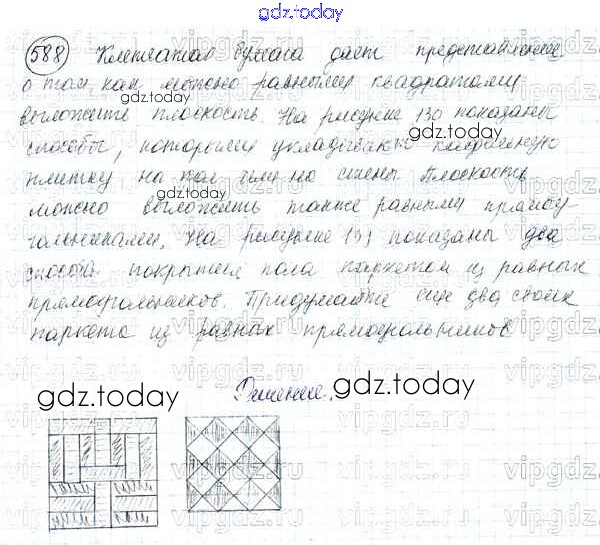 gdz.today
588 Клетчатая бумага дает представление
о том, как можно равными квадратами
выложить плоскость. На рисунке 130 показаны
gdz.today
gdz.today
способы, которыми укладывают кафельную
плитку на пол или на стены. Плоскость
gdz.today
можно выложить также равными прямоу-
гольниками. На рисунке 131 показаны два
способа покрытия пола паркетом из равных
прямоугольников. Придумайте еще два своих
паркета из равных прямоугольников
gdz.today
gdz.today
Решение.